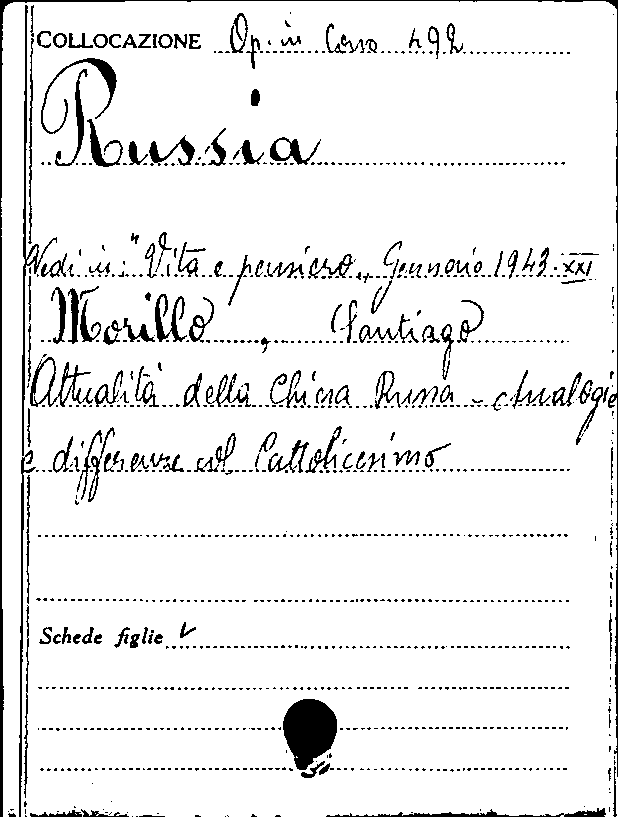 COLLOCAZIONE Op. in Corso 492
Russia
Vedi in: "Vita e pensiero„ Gennaio 1943-XXI
Morillo, Santiago
Attualità della Chiesa Russa - Analogie
e differenze col Cattolicesimo
Schede figlie ✓